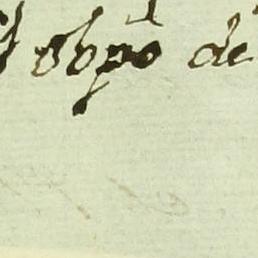 obpo de